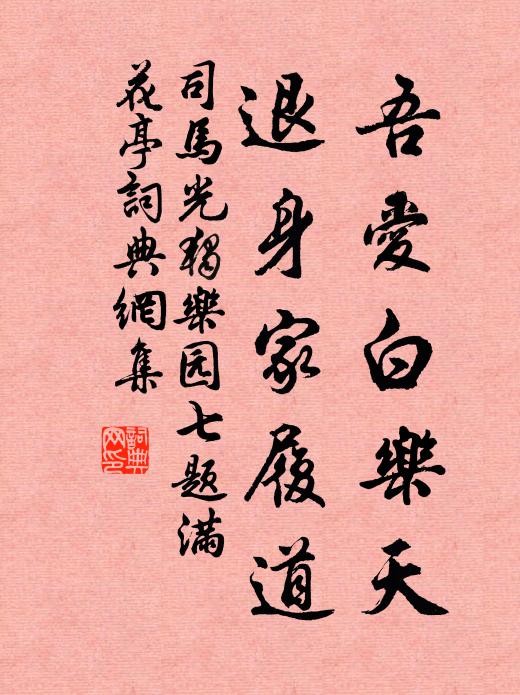 吾愛白樂天
退身家履道
司馬光獨樂园七题滿
花亭詞典網集
詞典
网印